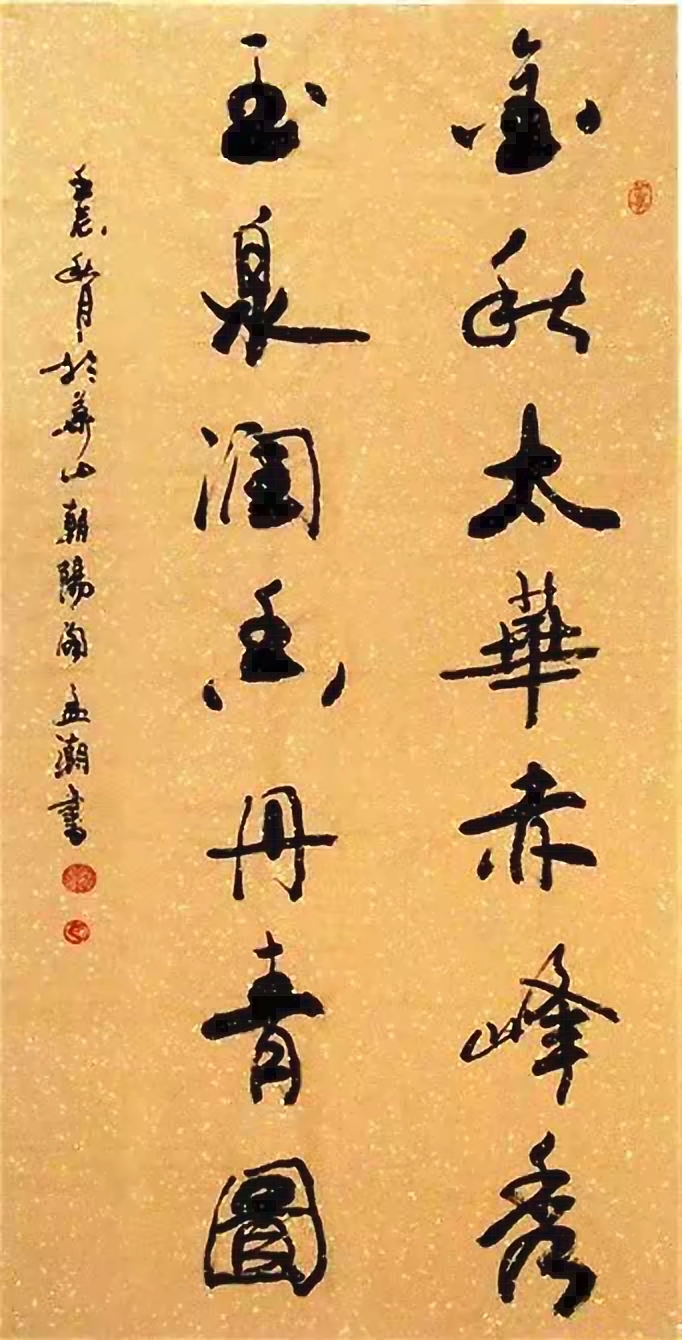 金秋太華赤峰秀
玉泉潤香丹青圖
壬辰秋月於華山朝陽閣孟潮書